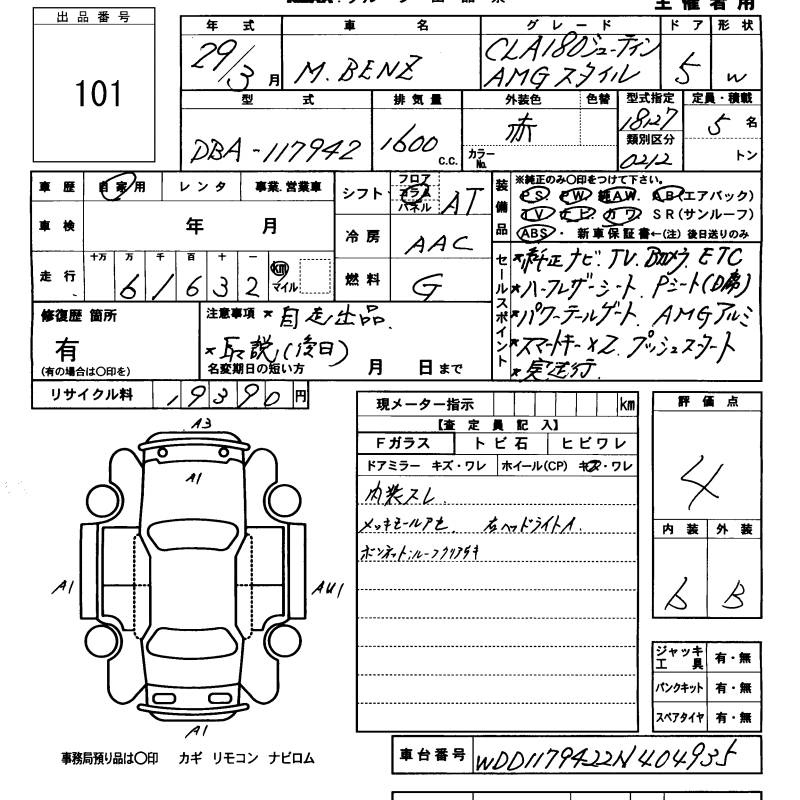 主催者用
出品番号
101
年式 車名 グレード ドア 形状
29/3月 M.BENZ CLA180シューティン AMGスタイル 5 W
型式 排気量 外装色 色替 型式指定 定員・積載
DBA-117942 1600 C.C. 赤 カラーNo. 18127 5名
類別区分
0212 トン
車歴 自家用 レンタ 事業.営業車
車検 年 月
走行 十万 万 千 百 十 一
61632 km マイル
シフト フロア コラム パネル AT
冷房 AAC
燃料 G
装備品 ※純正のみ○印をつけて下さい。
PS. PW. 純AW. AB(エアバック)
TV ナビ カワ SR(サンルーフ)
ABS・ 新車保証書←(注)後日送りのみ
セールスポイント
*純正ナビ. TV. Bカメラ. ETC
*ハーフレザーシート. Pシート(D席)
*パワーテールゲート. AMGアルミ
*スマートキー×2. プッシュスタート
*実走行.
修復歴 箇所
有
(有の場合は○印を)
注意事項 *自走出品.
*取説(後日)
名変期日の短い方 月 日まで
リサイクル料 19390円
現メーター指示 km
【査定員記入】
Fガラス トビ石 ヒビワレ
ドアミラー キズ・ワレ ホイール(CP) キズ・ワレ
内装スレ.
メッキモールアセ. 右ヘッドライトA.
ボンネット,ルーフクリアハキ
評価点
4
内装 外装
b B
A3
A1
A1
AU1
A1
ジャッキ工具 有・無
パンクキット 有・無
スペアタイヤ 有・無
事務局預り品は○印 カギ リモコン ナビロム
車台番号 WDD1179422N404935